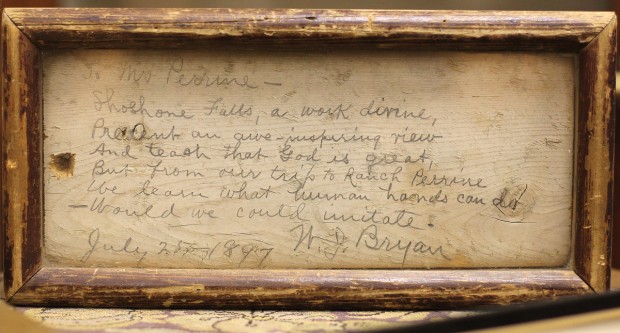 To Mr Perrine —
Shoshone Falls, a work divine,
Present an awe-inspiring view
And teach that God is great,
But from our trip to Ranch Perrine
We learn what human hands can do
— Would we could imitate.
July 1897 W. J. Bryan